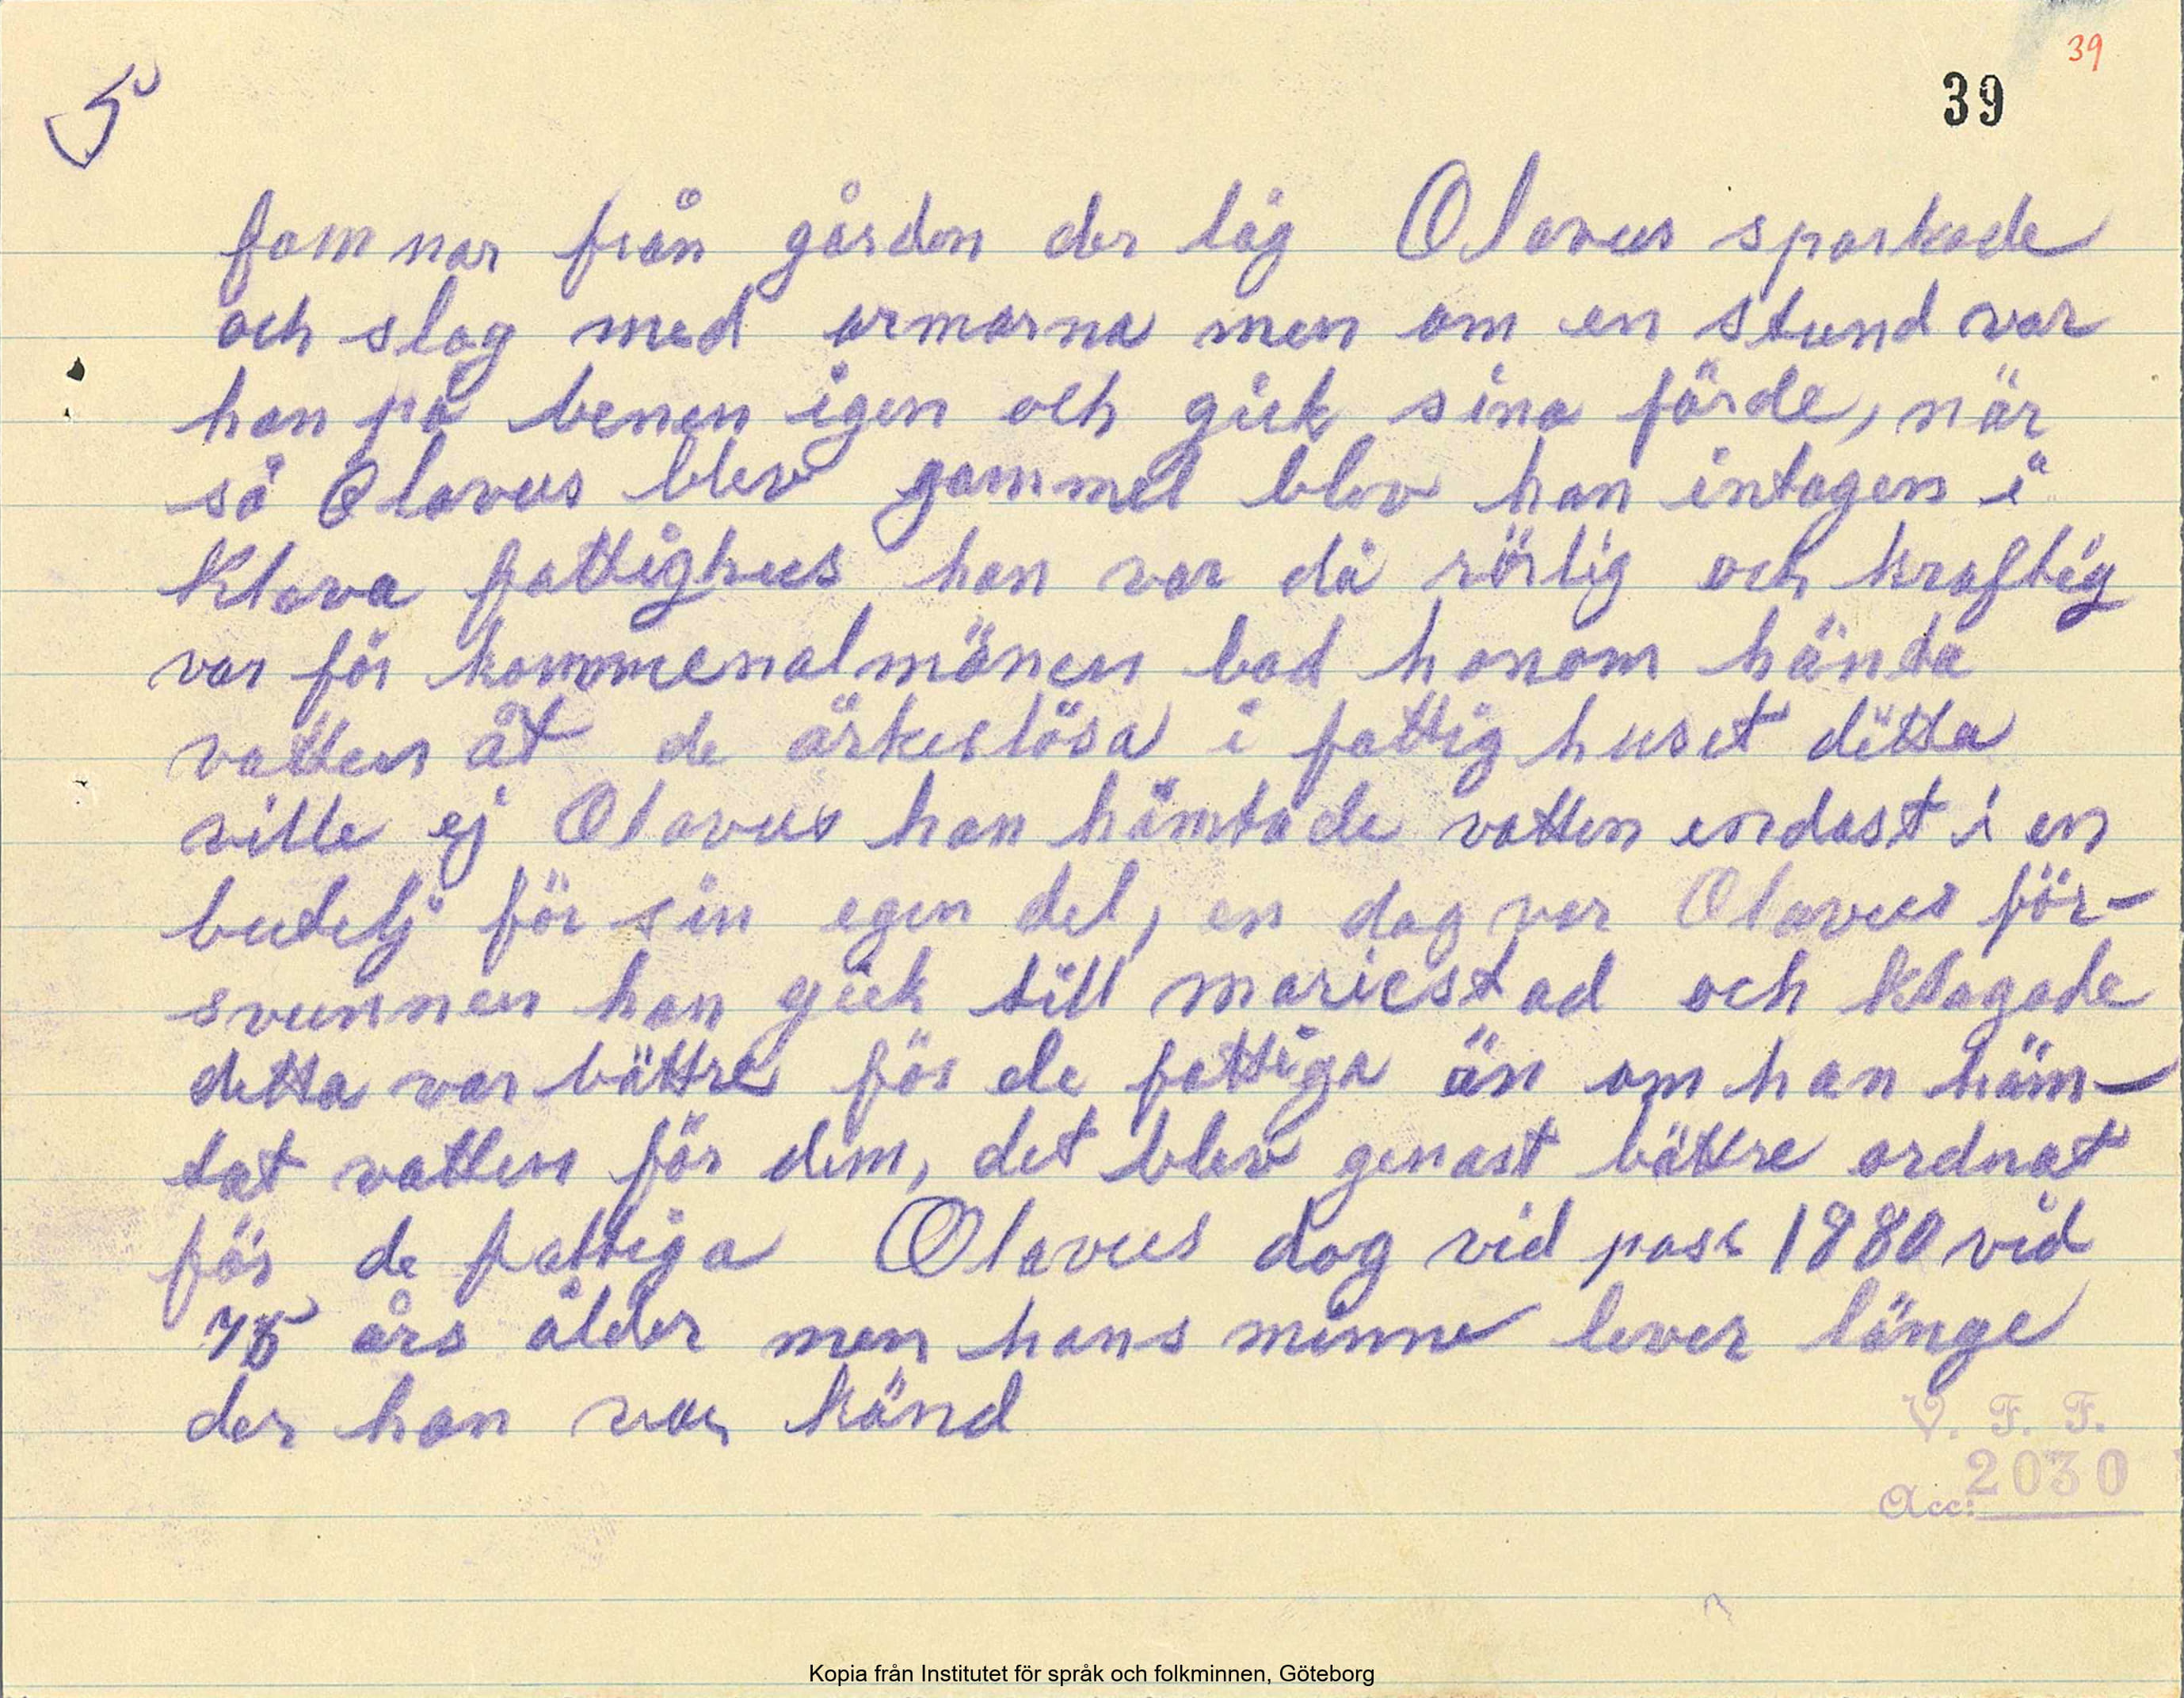 39
39
5
famnar från gården der låg Olavus sparkade
och slog med armarna men om en stund var
han på benen igen och gick sina färde, när
så Olavus blev gammel blev han intagen i
Klava fattighus han var då rörlig och kraftig
var för kommenalmänen bad honom hända
vatten åt de ärkeslösa i fattig huset detta
ville ej Olavus han hämtade vatten endast i en
butelj för sin egen del, en dag var Olavus för-
svunnen han gick till mariestad och klagade
detta var bättre för de fattiga än om han häm-
tat vatten för dem, det blev genast bättre ordnat
för de fattiga Olavus dog vid pass 1880 vid
75 års ålder men hans minne lever länge
der han var känd
V. F. F.
2030
Acc:
Kopia från Institutet för språk och folkminnen, Göteborg